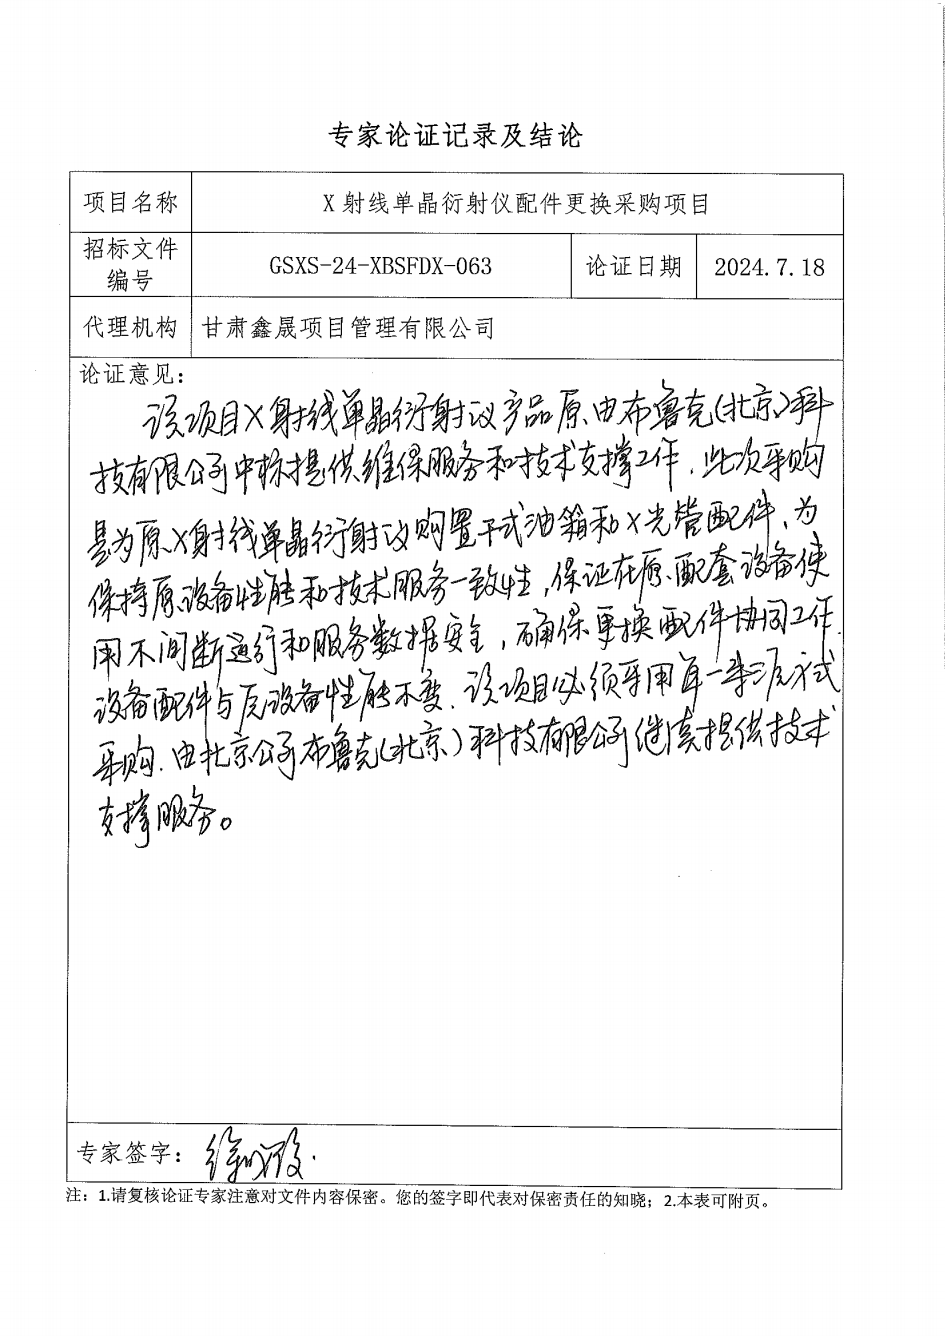 专家论证记录及结论
项目名称
X射线单晶衍射仪配件更换采购项目
招标文件
编号
GSXS-24-XBSFDX-063
论证日期
2024.7.18
代理机构
甘肃鑫晟项目管理有限公司
论证意见：
该项目X射线单晶衍射议产品原由布鲁克(北京)科
技有限公司中标提供维保服务和技术支撑工作，此次采购
是为原X射线单晶衍射议购置干式油箱和X光管配件，为
保持原设备性能和技术服务一致性，保证在原配套设备使
用不间断运行和服务数据安全，确保更换配件协同工作，
设备配件与原设备性能不变，该项目必须采用单一来源方式
采购，由北京公司布鲁克(北京)科技有限公司继续提供技术
支撑服务。
专家签字：
注：1.请复核论证专家注意对文件内容保密。您的签字即代表对保密责任的知晓；2.本表可附页。